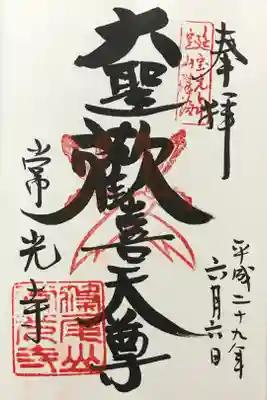 奉拝
大聖歓喜天尊
常光寺
平成二十九年
六月六日